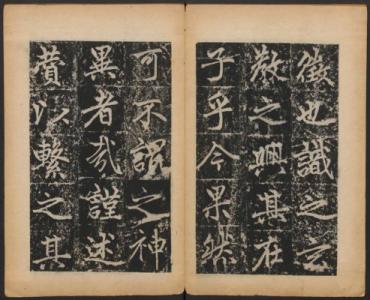 徵也識之言
教之興其在
子乎今果然
可不謂之神
異者哉謹述
賛以繫之其